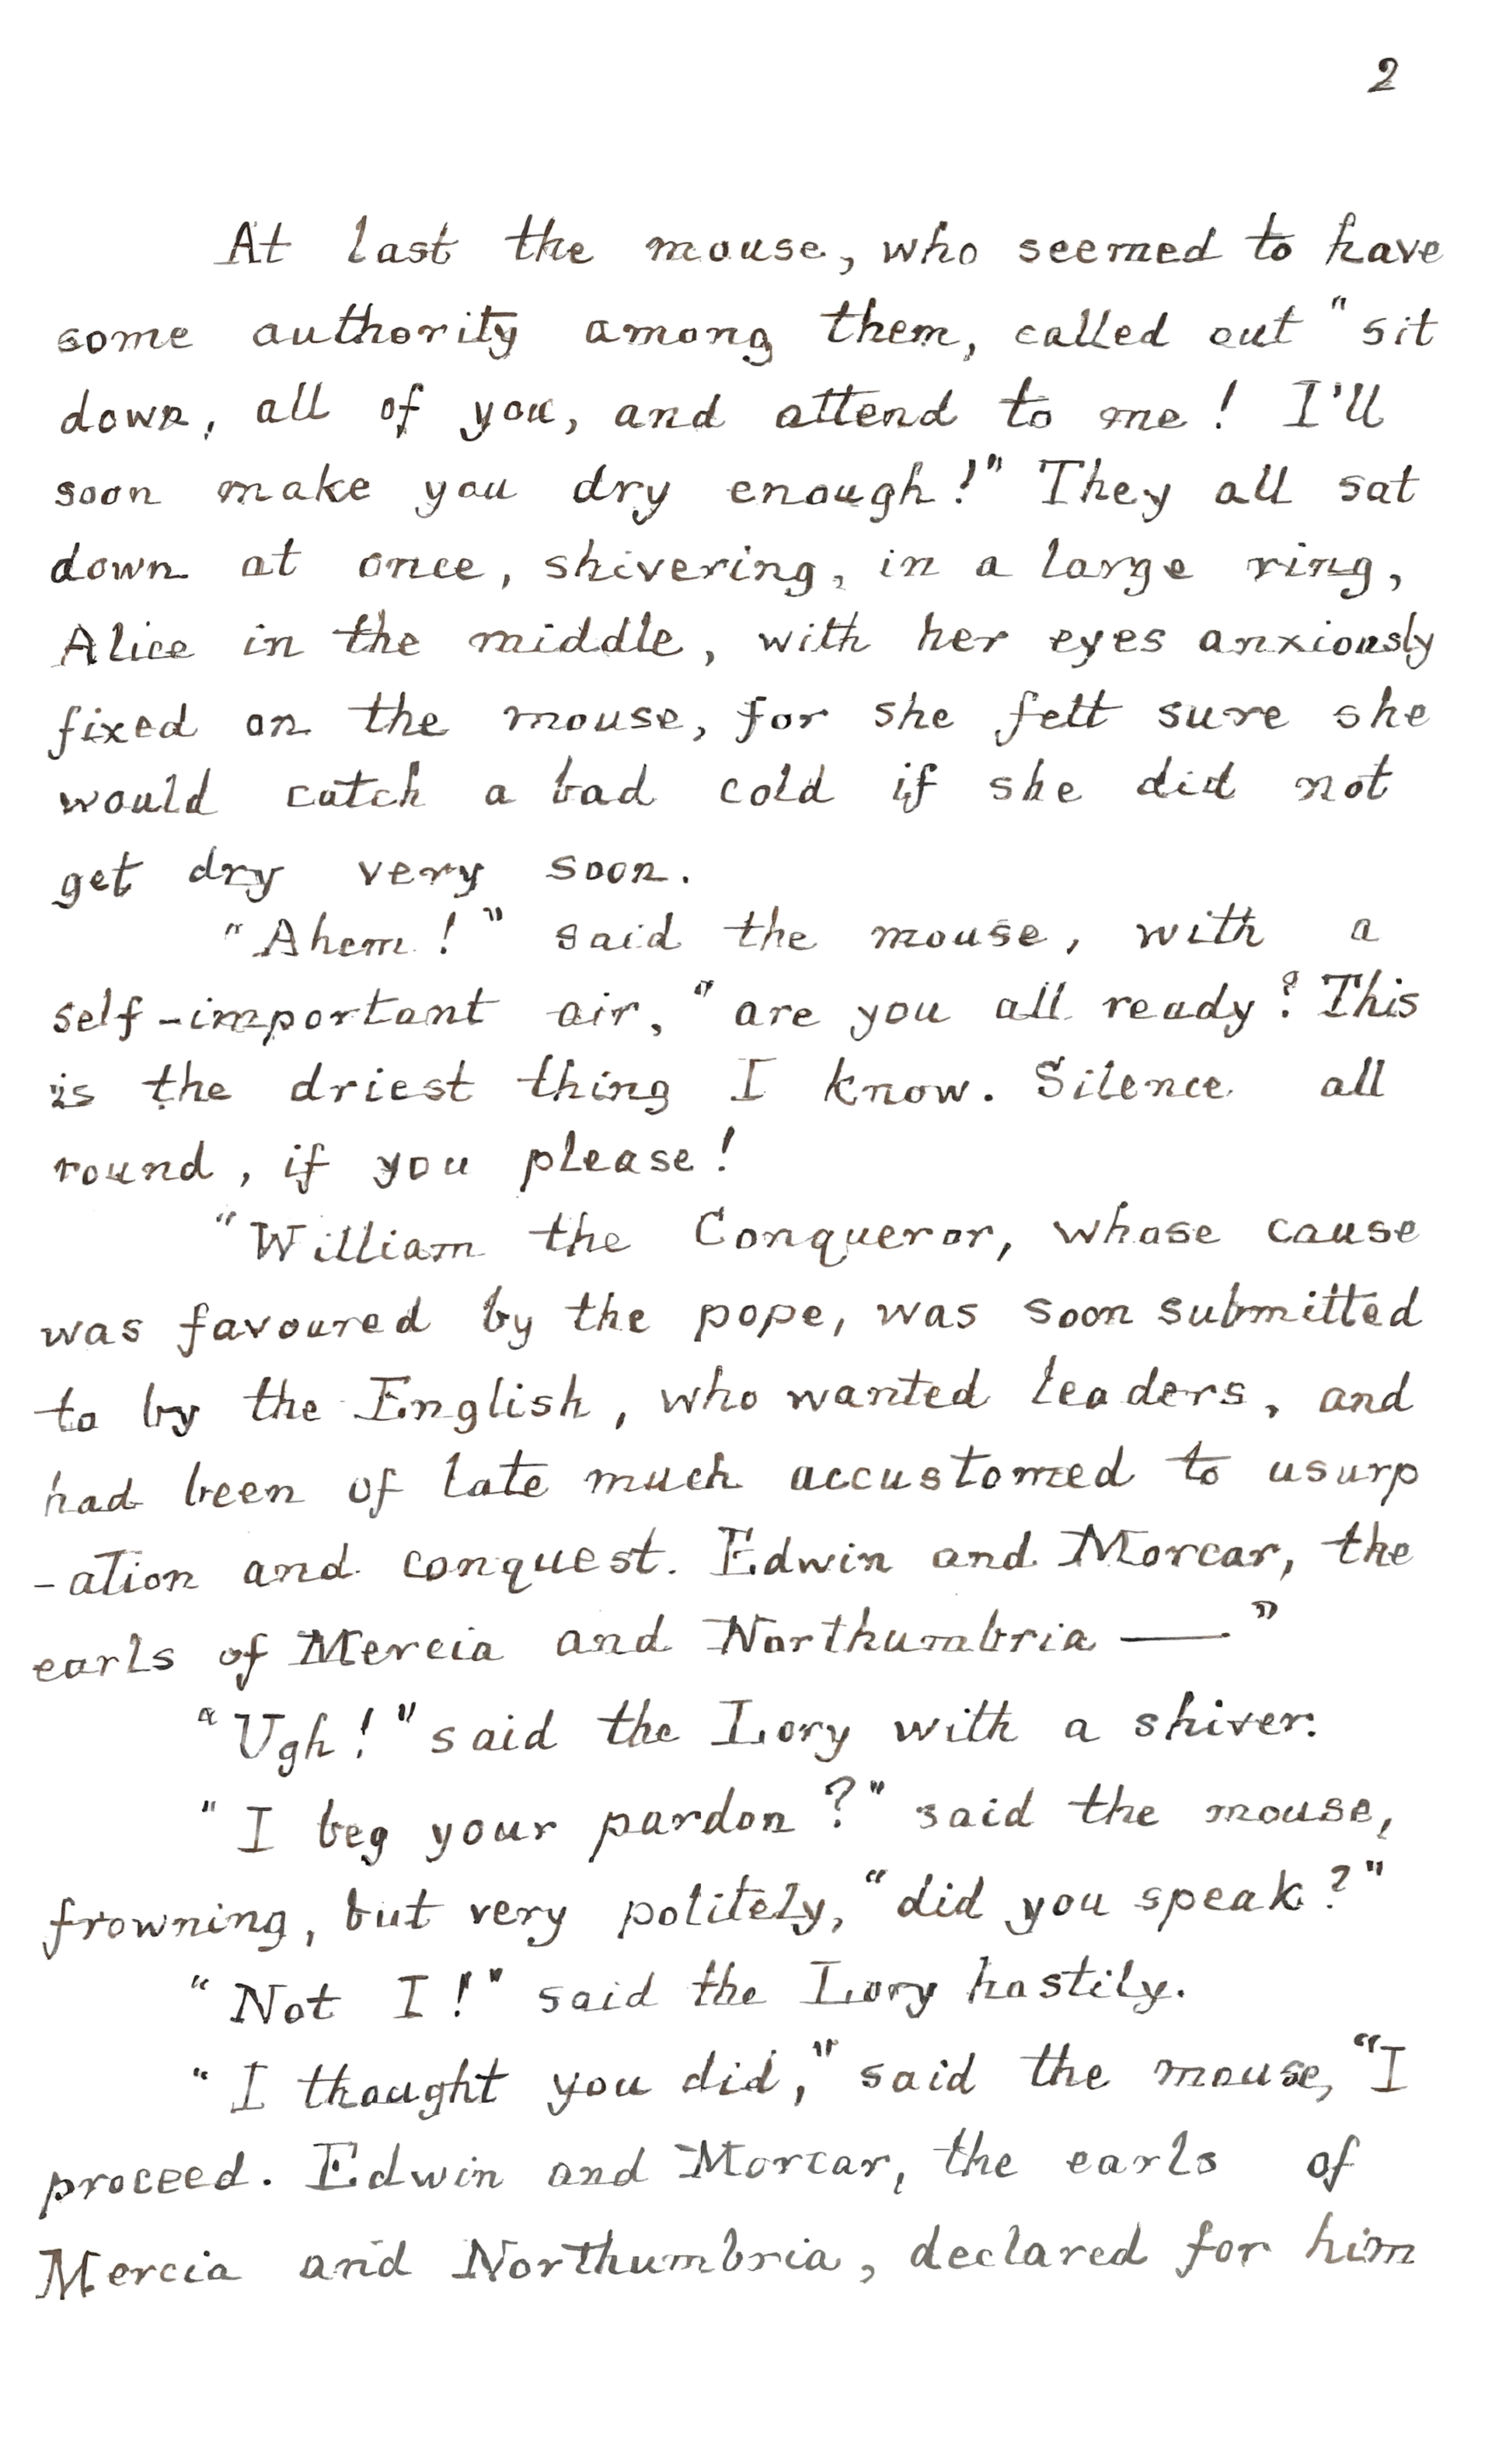 2
At last the mouse, who seemed to have
some authority among them, called out "sit
down, all of you, and attend to me! I'll
soon make you dry enough!" They all sat
down at once, shivering, in a large ring,
Alice in the middle, with her eyes anxiously
fixed on the mouse, for she felt sure she
would catch a bad cold if she did not
get dry very soon.
"Ahem!" said the mouse, with a
self-important air, "are you all ready? This
is the driest thing I know. Silence all
round, if you please!
"William the Conqueror, whose cause
was favoured by the pope, was soon submitted
to by the English, who wanted leaders, and
had been of late much accustomed to usurp
-ation and conquest. Edwin and Morcar, the
earls of Mercia and Northumbria —"
"Ugh!" said the Lory with a shiver.
"I beg your pardon?" said the mouse,
frowning, but very politely, "did you speak?"
"Not I!" said the Lory hastily.
"I thought you did," said the mouse, "I
proceed. Edwin and Morcar, the earls of
Mercia and Northumbria, declared for him